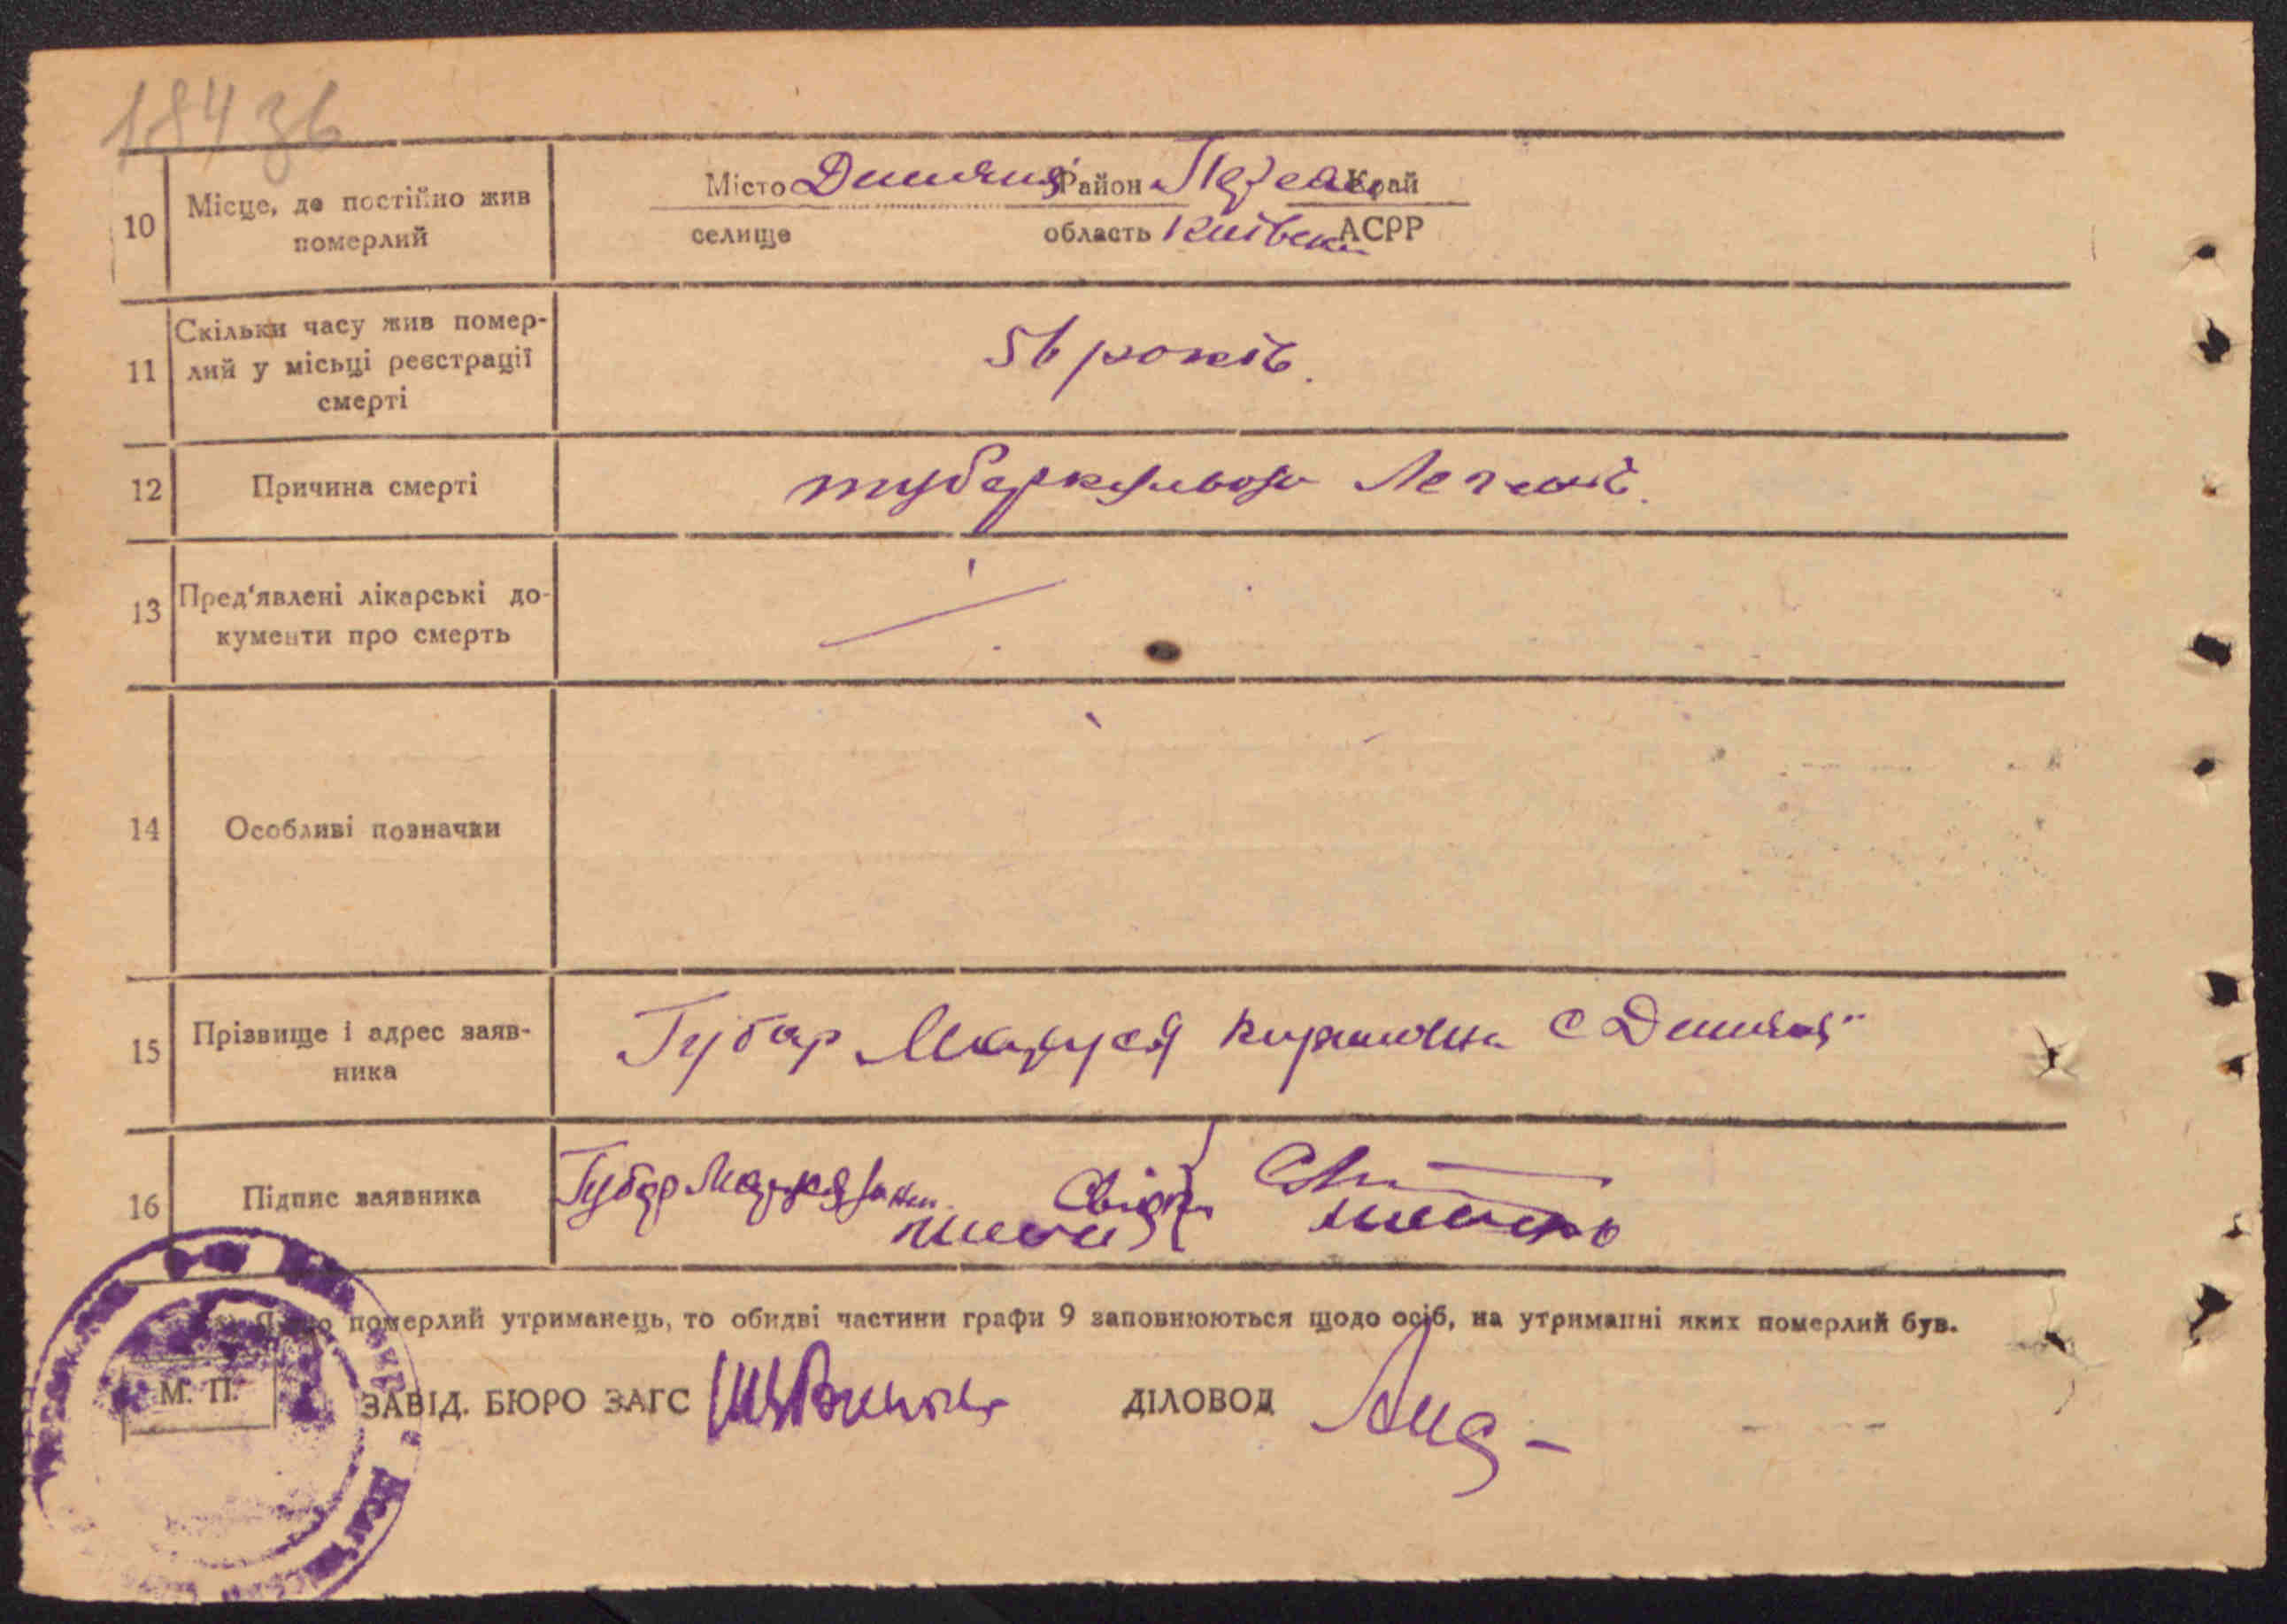 184 зв
10 Місце, де постійно жив померлий
Місто Дем'янці Район Переяс Край
селище область Київська АСРР
11 Скільки часу жив помер-
лий у місьці реєстрації
смерті
56 років.
12 Причина смерті туберкульоза Легенів.
13 Пред'явлені лікарські до-
кументи про смерть
14 Особливі позначки
15 Прізвище і адрес заяв-
ника
Губар Маруся С
16 Підпис заявника
Губар Маруся Свідки
Якщо померлий утриманець, то обидві частини графи 9 заповнюються щодо осіб, на утриманні яких померлий був.
М. П.
ЗАВІД. БЮРО ЗАГС ДІЛОВОД